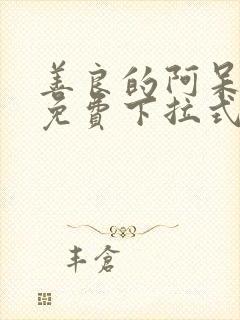 善良的阿呆
免費下拉式
丰倉